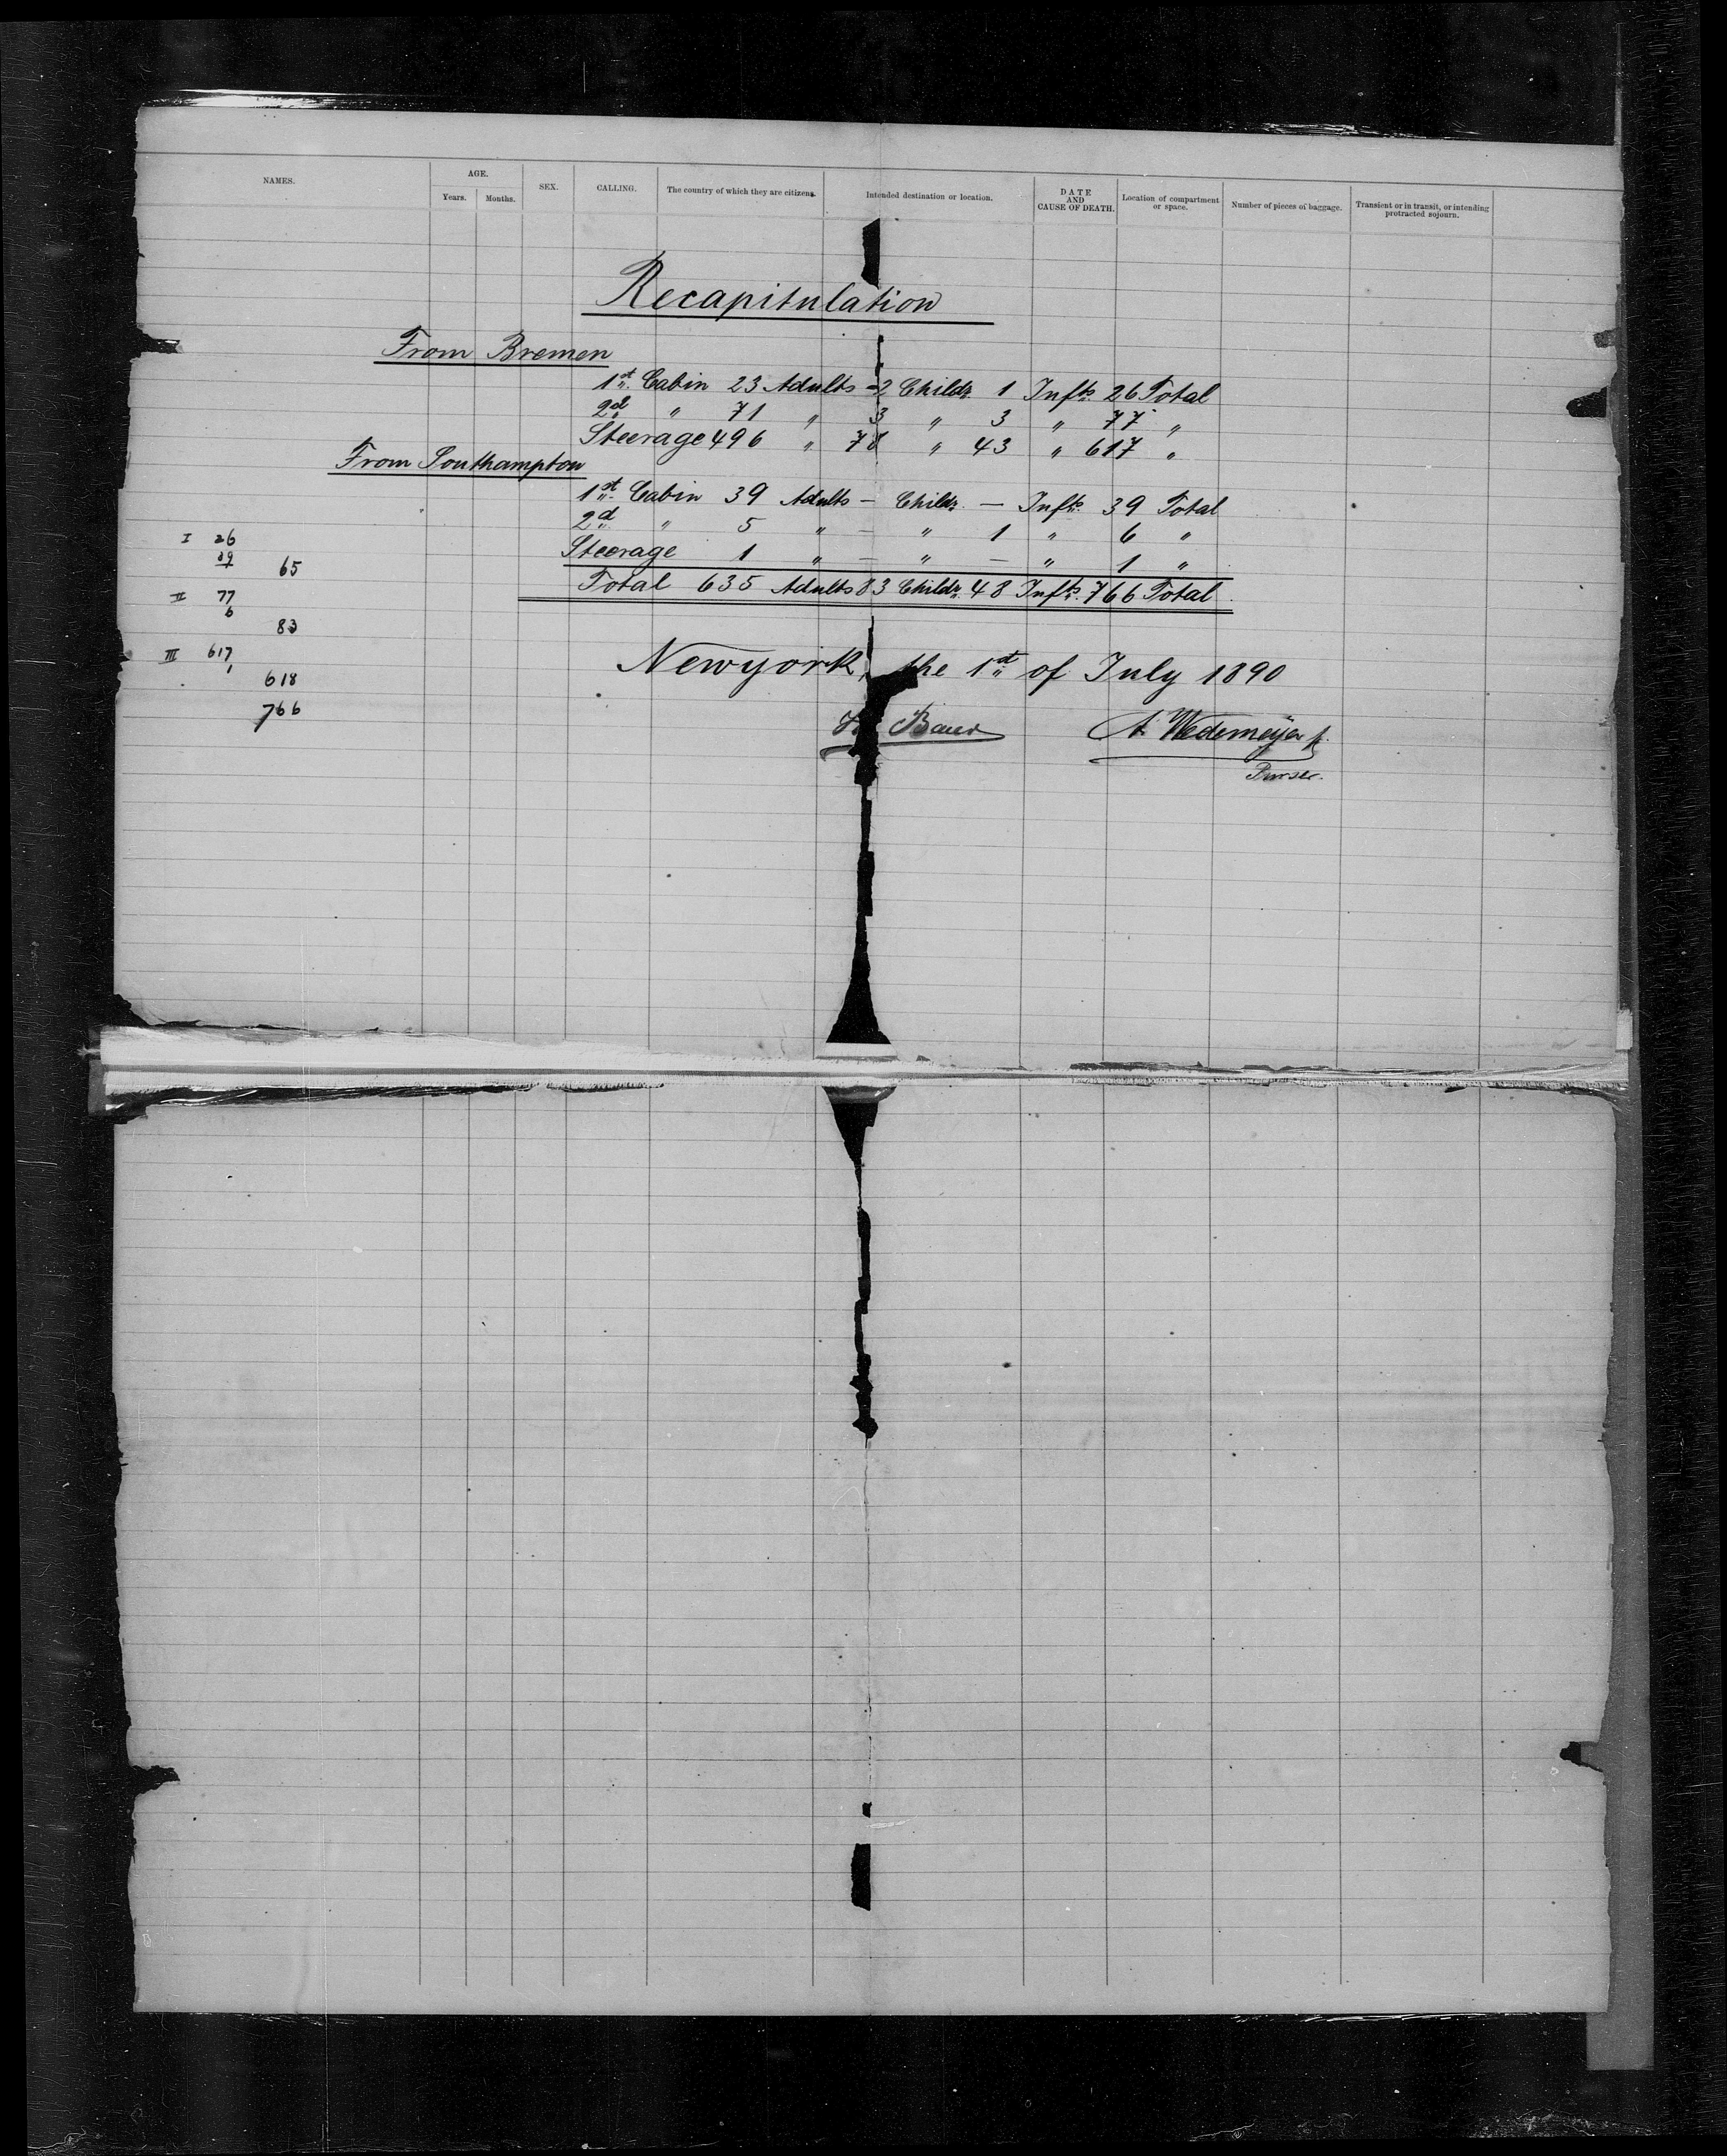 NAMES.
AGE.
Years.
Months.
SEX.
CALLING.
The country of which they are citizens.
Intended destination or location.
DATE
AND
CAUSE OF DEATH.
Location of compartment
or space.
Number of pieces of baggage.
Transient or in transit, or intending
protracted sojourn.
Recapitulation
From Bremen
1st Cabin 23 Adults - 2 Childr. 1 Infts. 26 Total
2d " 71 " 3 " 3 " 77 "
Steerage 496 " 78 " 43 " 617 "
From Southampton
1st Cabin 39 Adults — Childr. — Infts. 39 Total
2d " 5 " — " 1 " 6 "
Steerage 1 " — " — " 1 "
Total 635 Adults 83 Childr. 48 Infts. 766 Total.
I 26
39
65
II 77
6
83
III 617
1
618
766
Newyork, the 1st of July 1890
Baur
A. Wedemeyer
Purser.